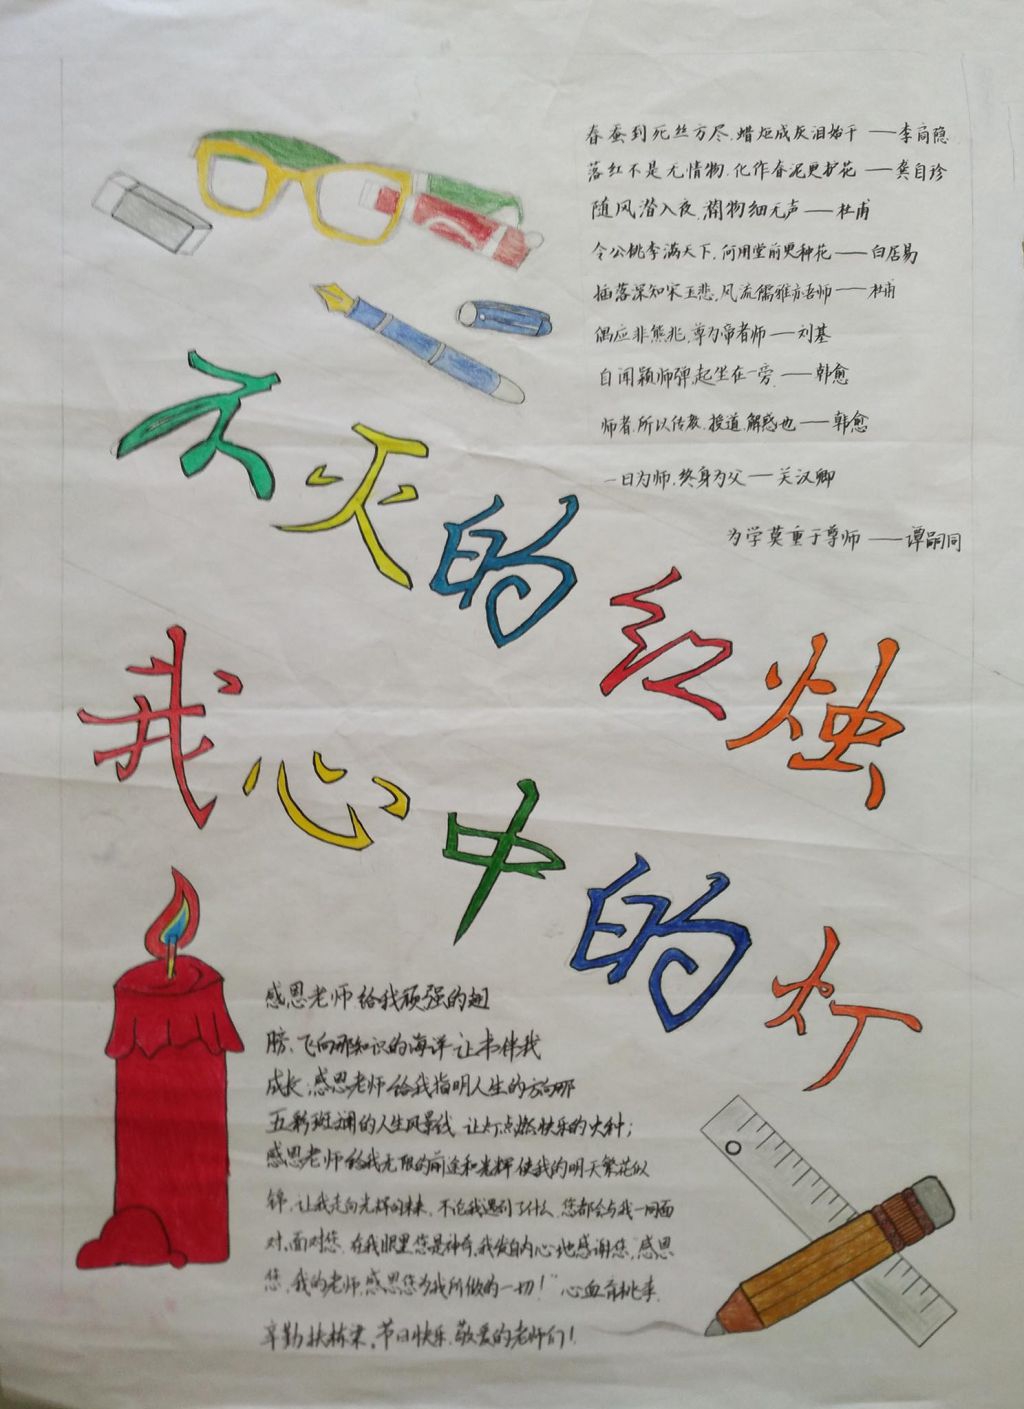 春蚕到死丝方尽,蜡炬成灰泪始干 ——李商隐
落红不是无情物,化作春泥更护花 ——龚自珍
随风潜入夜,润物细无声——杜甫
令公桃李满天下,何用堂前更种花——白居易
摇落深知宋玉悲,风流儒雅亦吾师——杜甫
偶应非熊兆,尊为帝者师——刘基
自闻颖师弹,起坐在一旁——韩愈
师者,所以传教,授道,解惑也——韩愈
一日为师,终身为父——关汉卿
为学莫重于尊师——谭嗣同
不灭的红烛
我心中的灯
感恩老师给我顽强的翅
膀,飞向那知识的海洋让书伴我
成长;感恩老师给我指明人生的方向那
五彩斑斓的人生风景线,让灯点燃快乐的火种;
感恩老师给我无限的前途和光辉使我的明天繁花似
锦,让我走向光辉的未来,不论我遇到了什么,您都会与我一同面
对,面对您,在我眼里您是神奇,我发自内心地感谢您,感恩
您,我的老师,感恩您为我所做的一切!"心血育桃李,
辛勤扶栋梁,节日快乐,敬爱的老师们!